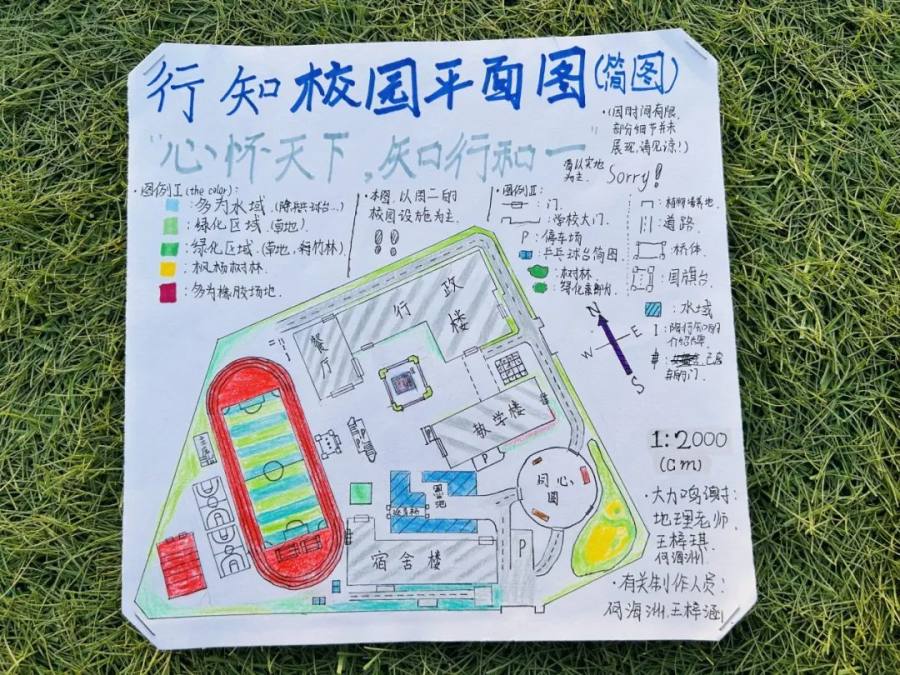 行知校园平面图(简图)
"心怀天下,知行和一"
·(因时间有限,
部分细节并未
展现,请见谅!)
需以实地
为主.
Sorry!
·图例Ⅰ(the color):
:多为水域.
:绿化区域.(草地).
:绿化区域.(草地、
:枫杨树林.
:多为橡胶场地.
·本图,以周二的
校园设施为主.
·图例Ⅱ:
:门.
:学校大门.
P:停车场
:乒乓球台简图
:树林
:道路
:桥体.
:国旗台.
:水域
N
W
E
S
行政
楼
餐厅
教学楼
P
同心
圆
宿舍楼
P
1:2000
(cm)
·大力鸣谢:
地理老师.
王梓琪.
何海洲.
·有关制作人员:
何海洲.王梓涵